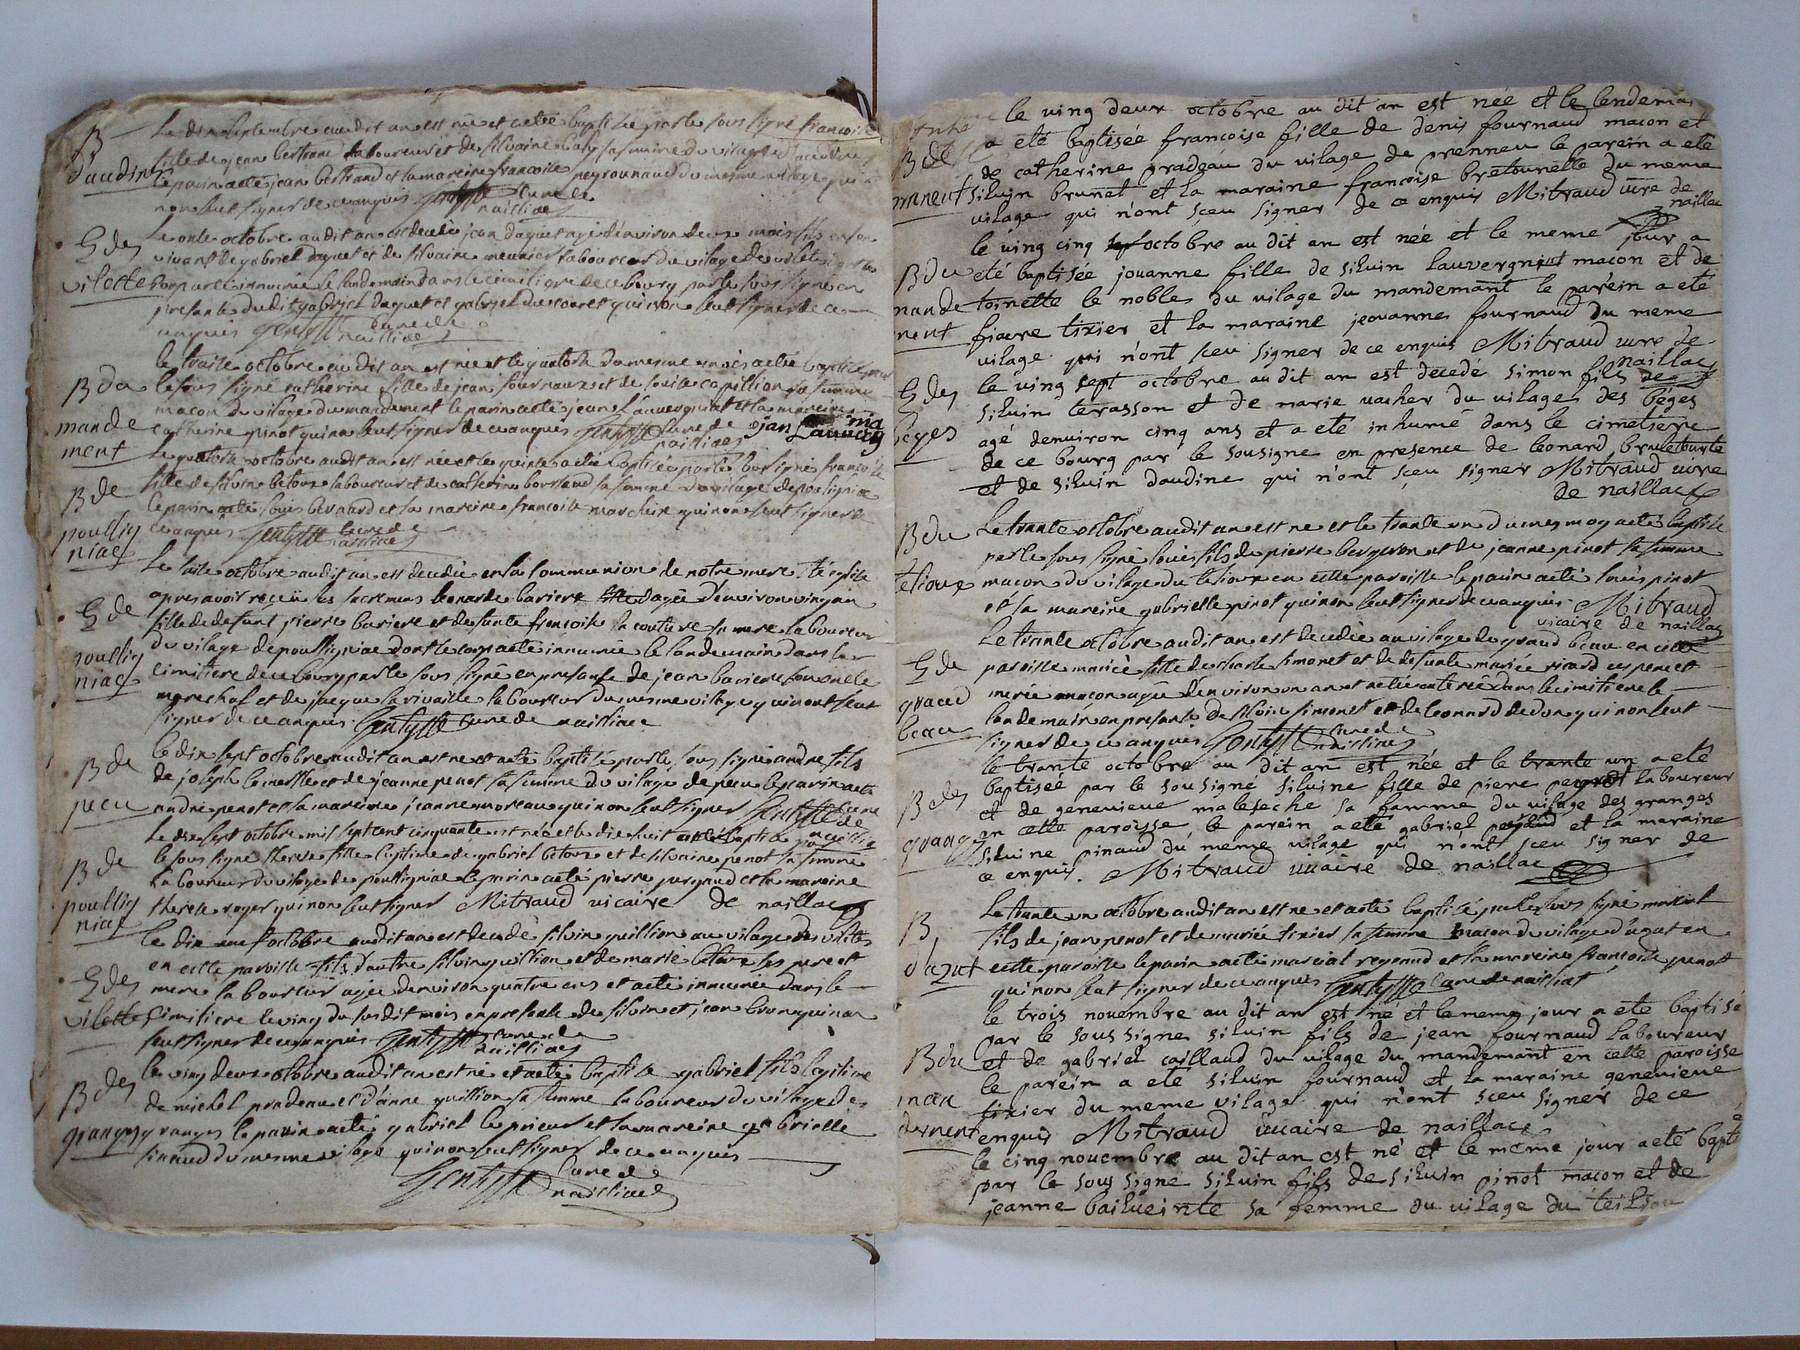 B
daudine
Le dix septembre audit an est née et a été baptisée par le sous signé francoise
fille de jean bertrand laboureur et de silvaine sa femme du village
le parin a été jean bertrand et la mareine francoise peyrounaud du mesme vilage qui
non seut signer de ce anquis curé de
nailliac
E des
vilette
Le onse octobre audit an est decedé jean daquet agé d'environ deux mois fils
vivant de gabriel daquet et de silvaine meunier laboureur du vilage de vilette
corps a été innumé le landemain dans le cimitiere de ce bourg par le sous signé en
presance dudit gabriel daquet et gabriel ducouret qui non seut signer de ce
anquis curé de
naillac
B du
mande
ment
le traise octobre audit an est née et le quatorse du mesme mois a été baptisée par
le sous signé catherine fille de jean fournaux et de louise capillion sa femme
macon du vilage du mandement le parin a été jean lauvergniat et la mareine
catherine pinot qui non seut signer de ce anquis curé de
naillac
B de
poullig
niac
Le quatorse octobre audit an est née et le quinse a été baptisée par le sous signé francoise
fille de silvin betoux laboureur et de catherine sa femme du vilage de poulligniac
le parin a été louis bernard et la mareine francoise marchaix qui non seut signer de
ce anquis curé de
naillac
E de
poullig
niac
octobre audit an est decedée en la communion de notre mere Ste eglise
apres avoir reçeü les sacremens leonarde bariere agée d'environ vingt an
fille de defunt pierre bariere et defunte francoise la couture sa mere laboureur
du vilage de poulligniac dont le corps a été innumée le landemain dans le
cimitiere de ce bourg par le sous signé en presance de jean bariere son oncle
marechal et de jacque larivaille laboureur du mesme vilage qui nont seut
signer de ce anquis curé de naillac
B de
peu
Le dix sept octobre audit an est né et a été baptisé par le sous signé andre fils
de joseph lemesle et de jeanne penot sa femme du vilage de peu le parin a été
andre penot et la mareine jeanne moreau qui non seut signer curé
de
naillac
B de
poullig
niac
Le dix sept octobre mil sept cent cinquante est née et le dix huit a été baptisée par
le sous signé therese fille legitime de gabriel betoux et de silvaine penot sa femme
laboureur du vilage de poulligniac le parin a été pierre jurgnaud et la mareine
therese roger qui non seut signer Mitraud vicaire de naillac
E des
vilette
le dix neuf octobre audit an est decedé silvin guillion au vilage des vilettes
en cette paroisse fils d'autre silvin guillion et de marie betoux ses pere et
mere laboureur agé d'environ quatre ans et a été innumé dans le
cimitiere le vingt du susdit mois en presance de silvin et jean brun qui non
seut signer de ce anquis curé de
naillac
B des
granges
le vingt deux octobre audit an est né et a été baptisé gabriel fils legitime
de michel pradeau et d'anne guillion sa femme laboureur du vilage des
granges le parin a été gabriel le prieur et la mareine gabrielle
pinaud du mesme vilage qui non seut signer de ce anquis
curé de
naillac
B de
prnneut
le ving deux octobre au dit an est née et le lendemain
a eté baptisée francoise fille de denis fournaud macon et
de catherine pradeau du vilage de prenneu le parein a eté
siluin brunet et la maraine francoise bretounelle du meme
vilage qui n'ont sceu signer de ce enquis Mitraud vicre de
naillac
B du
mande
ment
le ving cinq octobre au dit an est née et le meme jour a
eté baptisée jouanne fille de siluin lauvergniat macon et de
toinette le nobles du vilage du mandemant le parein a eté
fiacre tixier et la maraine jeouannes fournaud du meme
vilage qui n'ont sceu signer de ce enquis Mitraud vicre de
naillac
E des
beges
le ving sept octobre au dit an est decedé simon fils de
siluin terasson et de marie vacher du vilage des béges
agé denuiron cinq ans et a eté inhumé dans le cimetiere
de ce bourg par le sousigné en presence de leonard bruletourte
et de siluin daudine qui n'ont sçeu signer Mitraud vicre
de naillac
B du
telioux
Le trante octobre audit an est né et le trante un du mesme moy a été baptisé
par le sous signé louis fils de pierre bergeron et de jeanne pinot sa femme
macon du vilage du telioux en cette paroisse le parin a été louis pinot
et la mareine gabrielle pinot qui non seut signer de ce anquis Mitraud
vicaire de naillac
E de
grand
beau
Le trante octobre audit an est decedée au vilage de grand beau en cette
paroisse mariee fille de charle simonet et de defunte mariee ricard ces pere et
mere macon agée d'environ un an et a été enterrée dans le cimitiere le
landemain en presance de silvin simonet et de leonnard dedun qui non seut
signer de ce anquis curé de
naillac
B des
grang
le trante octobre au dit an est née et le trante un a eté
baptisée par le sousigné siluine fille de piere penot laboureur
et de genevieue maleseche sa famme du vilage des granges
en cette paroisse, le parein a eté gabriel pinaud et la maraine
siluine pinaud du meme vilage qui n'ont sceu signer de
ce enquis. Mitraud vicaire de naillac
B
d'azat
Le trante un octobre audit an est né et a été baptisé par le sous signé marcial
fils de jean penot et de mariée tixier sa femme macon du vilage d'azat en
cette paroisse le parin a été marcial regeaud et la mareine francoise penot
qui non seut signer de ce anquis curé de naillat
B du
man
dement
le trois novembre au dit an est né et le meme jour a eté baptisé
par le sous signé siluin fils de jean fournaud laboureur
et de gabriel caillaud du vilage du mandemant en cette paroisse
le parein a eté siluin fournaud et la maraine genevieue
tixier du meme vilage qui n'ont sceu signer de ce
enquis Mitraud vicaire de naillac
le cinq novembre au dit an est né et le même jour a eté bapté
par le sous signé siluin fils de siluin pinot macon et de
jeanne sa femme du vilage du teilioux